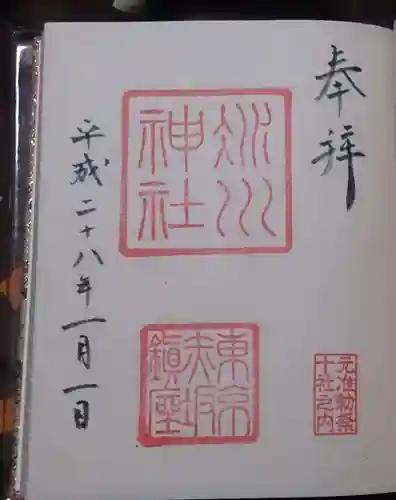 奉拝
氷川
神社
東京
赤坂
鎮座
元准勅祭
十社之内
平成二十八年一月一日